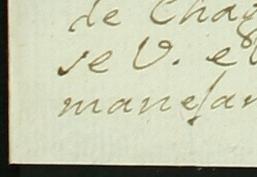 de Chag
se V. e
manejar